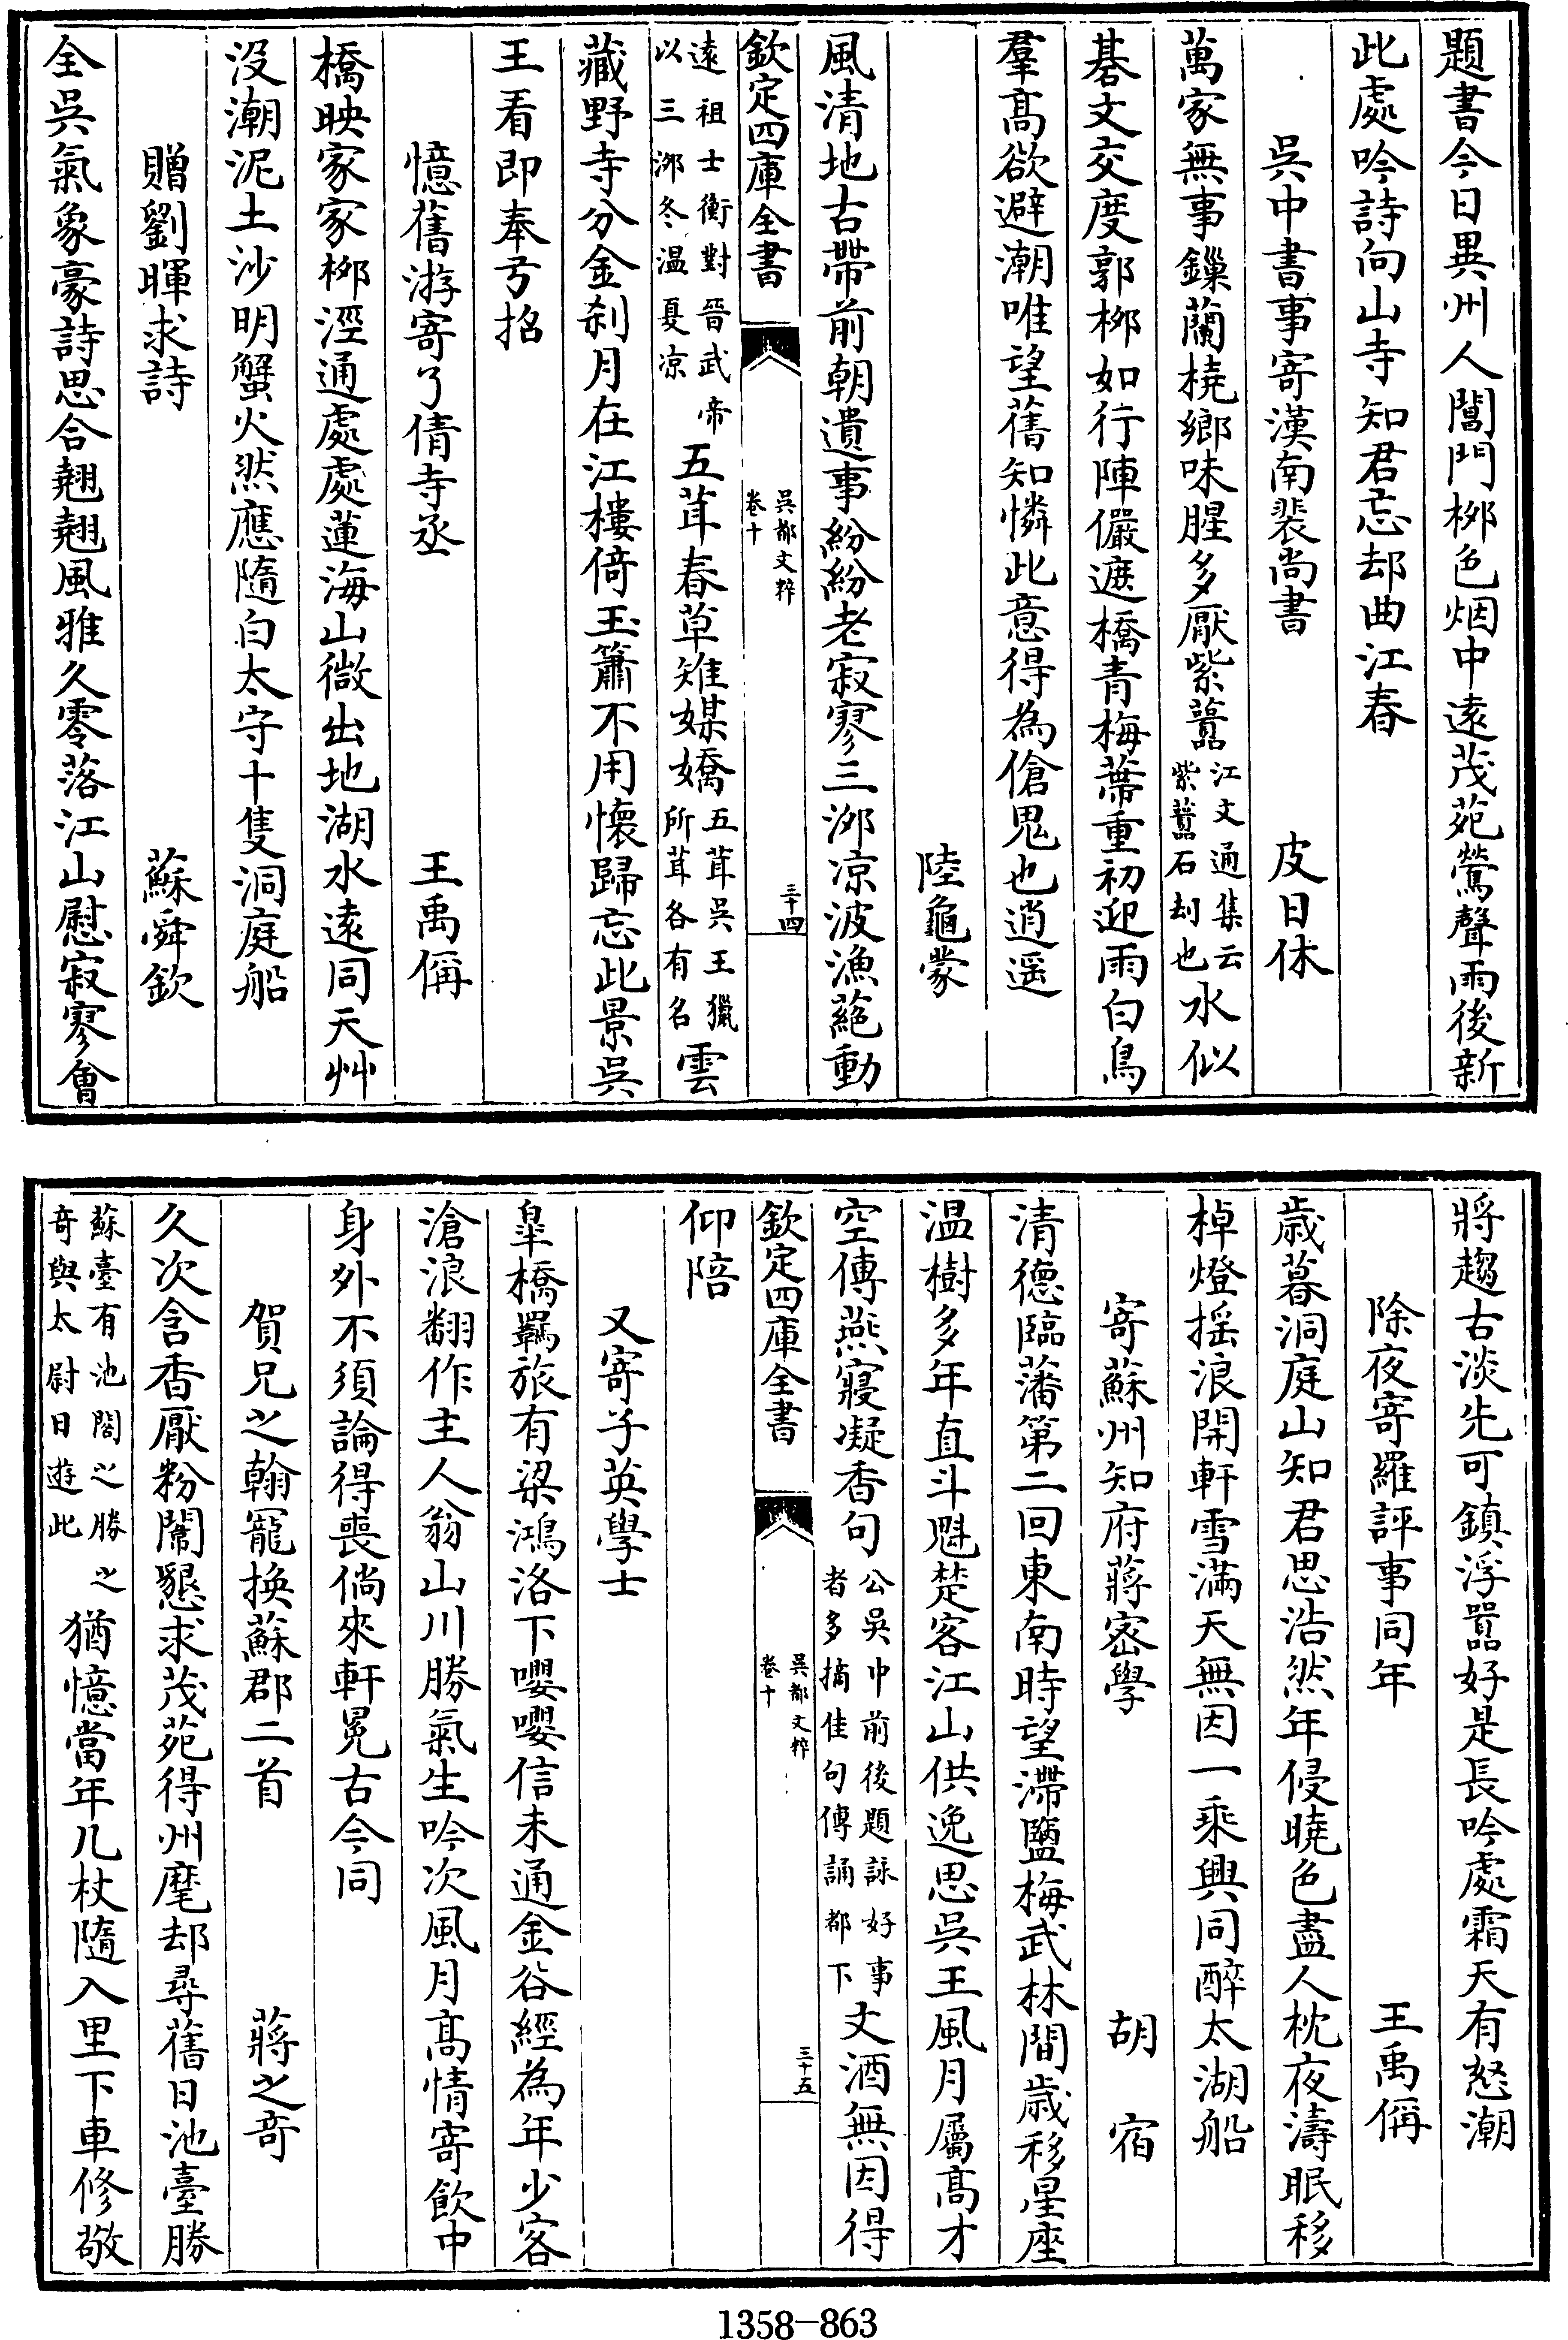 題書今日異州人閶門栁色烟中逺茂苑鶯聲雨後新
此處吟詩向山寺知君忘却曲江春
吳中書事寄漢南裴尚書　皮日休
萬家無事鏁蘭橈鄉味腥多厭紫䕸江文通集云紫䕸石刦也水似
碁文交度郭栁如行陣儼遮橋青梅蔕重初迎雨白鳥
羣髙欲避潮唯望舊知憐此意得為傖鬼也逍遥
陸龜蒙
風清地古帶前朝遺事紛紛老寂寥三泖凉波漁蕝動
逺祖士衡對晉武帝以三泖冬温夏凉五茸春草雉媒嬌五茸吳王獵所茸各有名雲
藏野寺分金刹月在江樓倚玉簫不用懷歸忘此景吳
王看即奉弓招
憶舊游寄刁倩寺丞　王禹偁
橋映家家栁涇通處處蓮海山微出地湖水逺同天艸
没潮泥土沙明蟹火然應隨白太守十隻洞庭船
贈劉暉求詩　蘇舜欽
全吳氣象豪詩思合翹翹風雅久零落江山慰寂寥會
欽定四庫全書
吳都文粹
卷十
三十四
將趨古淡先可鎮浮囂好是長吟處霜天有怒潮
除夜寄羅評事同年　王禹偁
歲暮洞庭山知君思浩然年侵曉色盡人枕夜濤眠移
棹燈揺浪開軒雪滿天無因一乘興同醉太湖船
寄蘇州知府蔣宻學　胡宿
清德臨藩第二回東南時望滯鹽梅武林間歲移星座
温樹多年直斗魁楚客江山供逸思吳王風月屬髙才
空傳燕寢凝香句公吳中前後題詠好事者多摘佳句傳誦都下文酒無因得
仰陪
又寄子英學士
臯橋羈旅有梁鴻洛下嚶嚶信未通金谷經為年少客
滄浪翻作主人翁山川勝氣生吟次風月髙情寄飲中
身外不須論得喪倘來軒冕古今同
賀兄之翰寵換蘇郡二首　蔣之竒
久次含香厭粉闈懇求茂苑得州麾却尋舊日池臺勝
蘇臺有池閣之勝之竒與太尉日遊此猶憶當年几杖隨入里下車修敬
欽定四庫全書
吳都文粹
卷十
三十五
1358-863